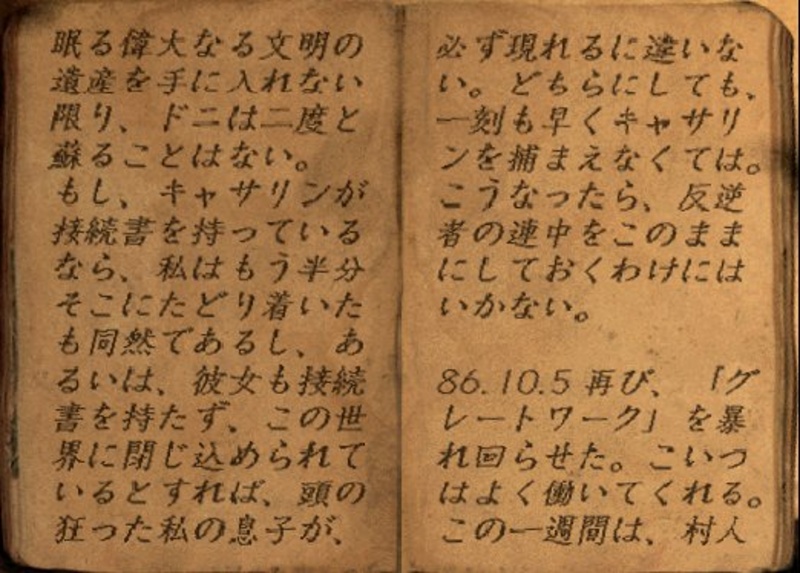 眠る偉大なる文明の
遺産を手に入れない
限り、ドニは二度と
蘇ることはない。
もし、キャサリンが
接続書を持っている
なら、私はもう半分
そこにたどり着いた
も同然であるし、あ
るいは、彼女も接続
書を持たず、この世
界に閉じ込められて
いるとすれば、頭の
狂った私の息子が、
必ず現れるに違いな
い。どちらにしても、
一刻も早くキャサリ
ンを捕まえなくては。
こうなったら、反逆
者の連中をこのまま
にしておくわけには
いかない。
86.10.5 再び、「グ
レートワーク」を暴
れ回らせた。こいつ
はよく働いてくれる。
この一週間は、村人